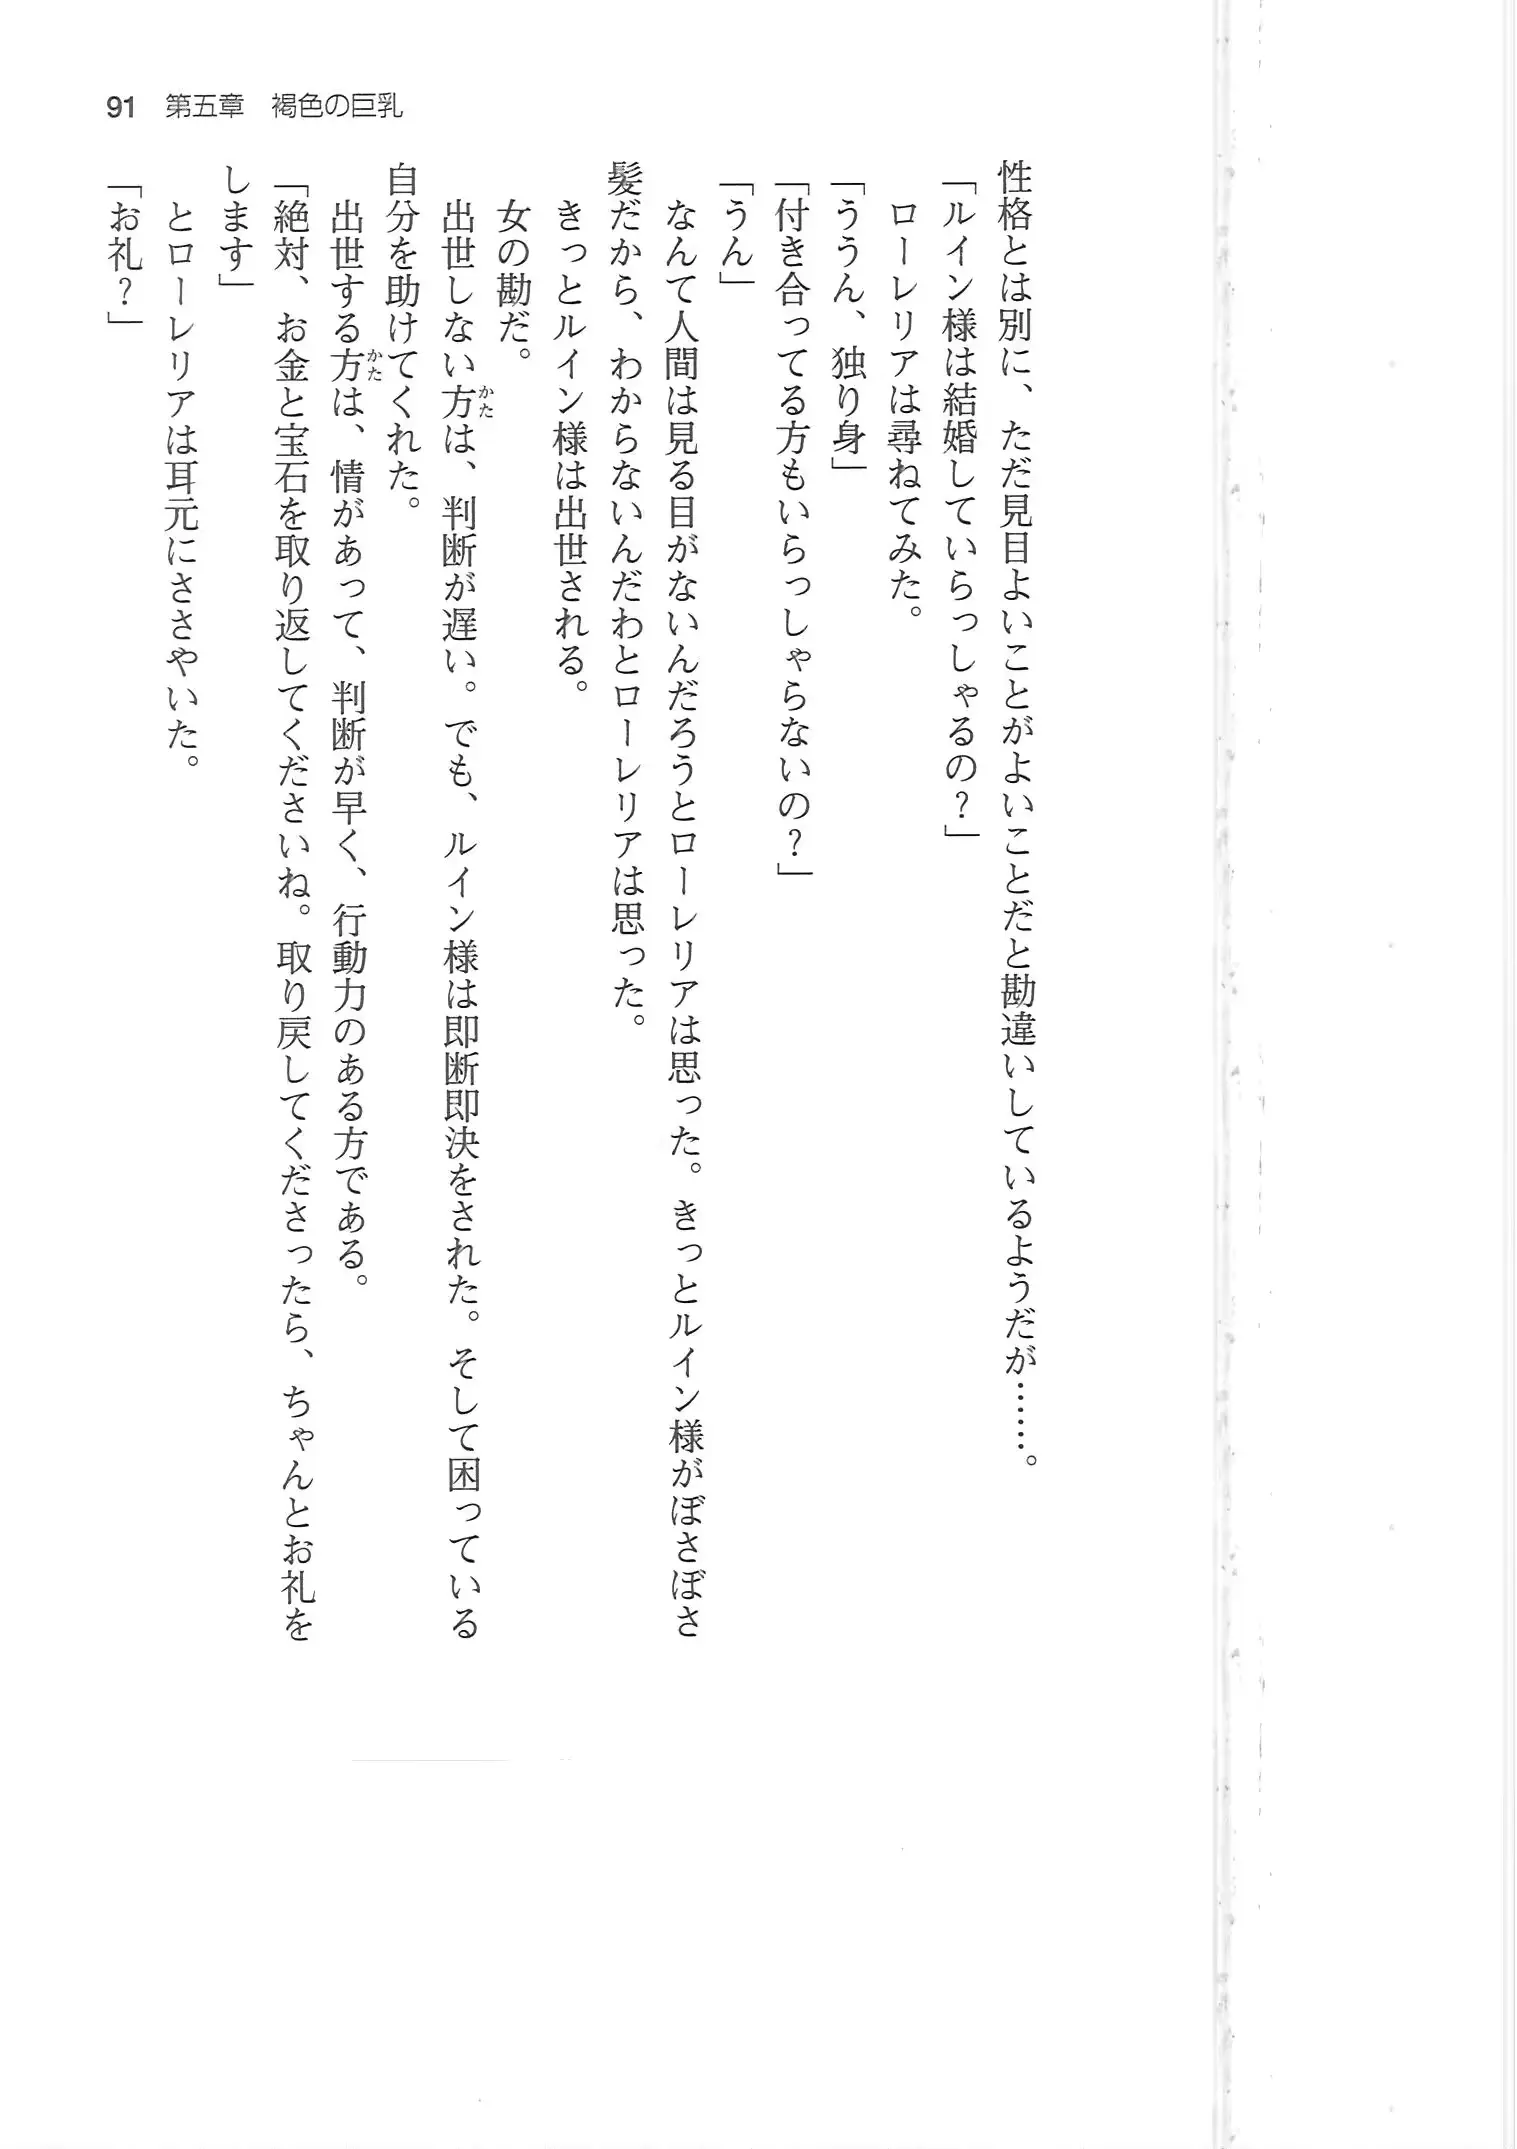 91　第五章　褐色の巨乳
性格とは別に、ただ見目よいことがよいことだと勘違いしているようだが……。
「ルイン様は結婚していらっしゃるの？」
　ローレリアは尋ねてみた。
「ううん、独り身」
「付き合ってる方もいらっしゃらないの？」
「うん」
　なんて人間は見る目がないんだろうとローレリアは思った。きっとルイン様がぼさぼさ
髪だから、わからないんだわとローレリアは思った。
　きっとルイン様は出世される。
　女の勘だ。
　出世しない方かたは、判断が遅い。でも、ルイン様は即断即決をされた。そして困っている
自分を助けてくれた。
　出世する方かたは、情があって、判断が早く、行動力のある方である。
「絶対、お金と宝石を取り返してくださいね。取り戻してくださったら、ちゃんとお礼を
します」
　とローレリアは耳元にささやいた。
「お礼？」